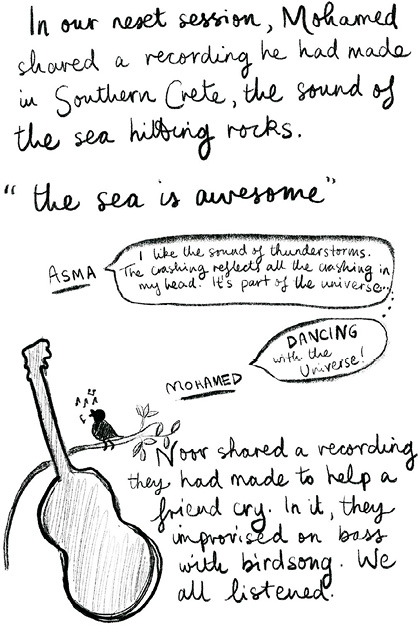 In our next session, Mohamed
shared a recording he had made
in Southern Crete, the sound of
the sea hitting rocks.
"the sea is awesome"
ASMA
I like the sound of thunderstorms.
The crashing reflects all the crashing in
my head. It's part of the universe...
DANCING
with the
Universe!
MOHAMED
Noor shared a recording
they had made to help a
friend cry. In it, they
improvised on bass
with birdsong. We
all listened.